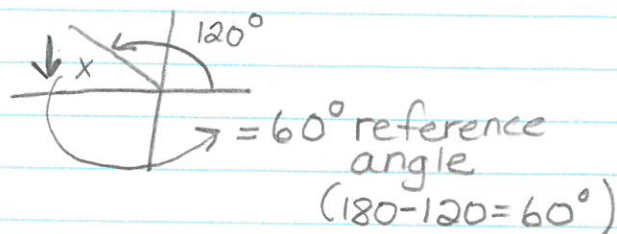 120°
x
= 60° reference
angle
(180-120=60°)